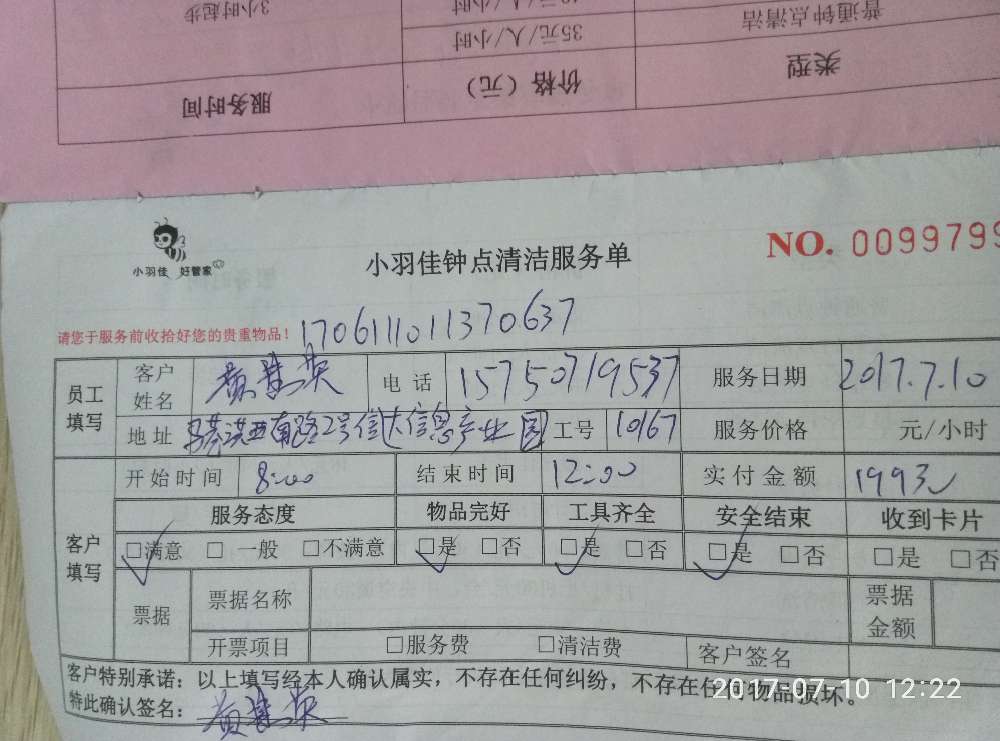 3小时起步
35元/人/小时
普通钟点清洁
服务时间
价格（元）
类型
小羽佳 好管家
小羽佳钟点清洁服务单
NO. 0099799
请您于服务前收拾好您的贵重物品！
170611011370637
员工填写
客户姓名
电话 15750719537
服务日期 2017.7.10
地址 西南路2号信达信息产业园
工号 10167
服务价格 元/小时
客户填写
开始时间 8:00
结束时间 12:00
实付金额 1993
服务态度 物品完好 工具齐全 安全结束 收到卡片
□满意 □一般 □不满意 □是 □否 □是 □否 □是 □否 □是 □否
票据
票据名称
票据金额
开票项目 □服务费 □清洁费 客户签名
客户特别承诺：以上填写经本人确认属实，不存在任何纠纷，不存在任何物品损坏。
特此确认签名：
2017-07-10 12:22